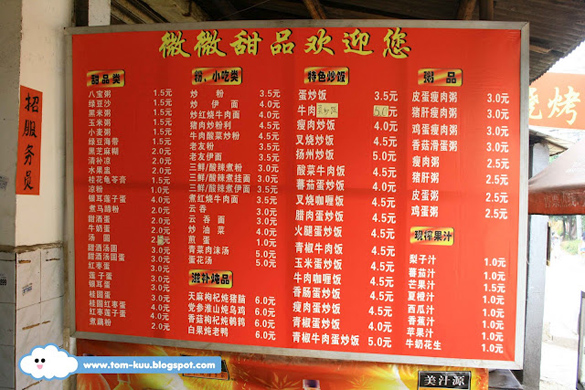 微微甜品欢迎您
甜品类
八宝粥 1.5元
绿豆沙 1.5元
黑米粥 1.5元
玉米粥 1.5元
小麦粥 1.5元
绿豆海带 1.5元
黑芝麻糊 2.0元
清补凉 2.0元
水果皇 2.0元
桂花龟苓膏 1.5元
凉粉 1.0元
银耳莲子蛋 4.0元
煮马蹄粉 2.0元
甜酒蛋 2.0元
牛奶蛋 2.0元
汤圆
甜酒汤圆 3.0元
甜酒汤圆蛋 3.0元
红枣蛋 3.0元
莲子蛋 3.0元
银耳蛋 3.0元
桂圆蛋 3.0元
桂圆红枣蛋 4.0元
红枣莲子蛋 4.0元
煮藕粉 2.0元
粉、小吃类
炒粉 3.5元
炒伊面 4.0元
炒红烧牛肉面 4.0元
猪肉炒粉利 4.5元
牛肉酸菜炒粉 4.5元
老友粉 3.5元
老友伊面 3.5元
三鲜/酸辣煮粉 3.0元
三鲜/酸辣煮挂面 3.0元
三鲜/酸辣煮伊面 3.5元
煮红烧牛肉面 3.5元
云吞 3.0元
云吞面 3.0元
炒油菜 4.0元
煎蛋 1.0元
青菜肉沫汤 5.0元
蛋花汤 5.0元
滋补炖品
天麻枸杞炖猪脑 6.0元
党参淮山炖乌鸡 6.0元
香菇枸杞炖鹌鹑 6.0元
白果炖老鸭 6.0元
特色炒饭
蛋炒饭 3.5元
牛肉
瘦肉炒饭 4.0元
叉烧炒饭 4.5元
扬州炒饭 5.0元
酸菜牛肉饭 4.5元
蕃茄蛋炒饭 4.0元
叉烧咖喱饭 4.5元
腊肉蛋炒饭 4.5元
火腿蛋炒饭 4.5元
青椒牛肉饭 4.5元
玉米蛋炒饭 4.5元
牛肉咖喱饭 4.5元
香肠蛋炒饭 4.5元
瘦肉蛋炒饭 4.5元
青椒蛋炒饭 4.5元
青椒牛肉蛋炒饭 5.0元
粥品
皮蛋瘦肉粥 3.0元
猪肝瘦肉粥 3.0元
鸡蛋瘦肉粥 3.0元
香菇滑蛋粥 3.0元
瘦肉粥 2.5元
猪肝粥 2.5元
皮蛋粥 2.5元
鸡蛋粥 2.5元
现榨果汁
梨子汁 1.0元
蕃茄汁 1.0元
芒果汁 1.5元
夏橙汁 1.0元
西瓜汁 1.0元
香蕉汁 1.0元
苹果汁 1.0元
牛奶花生 1.0元
招服务员
烧烤
美汁源
www.tom-kuu.blogspot.com